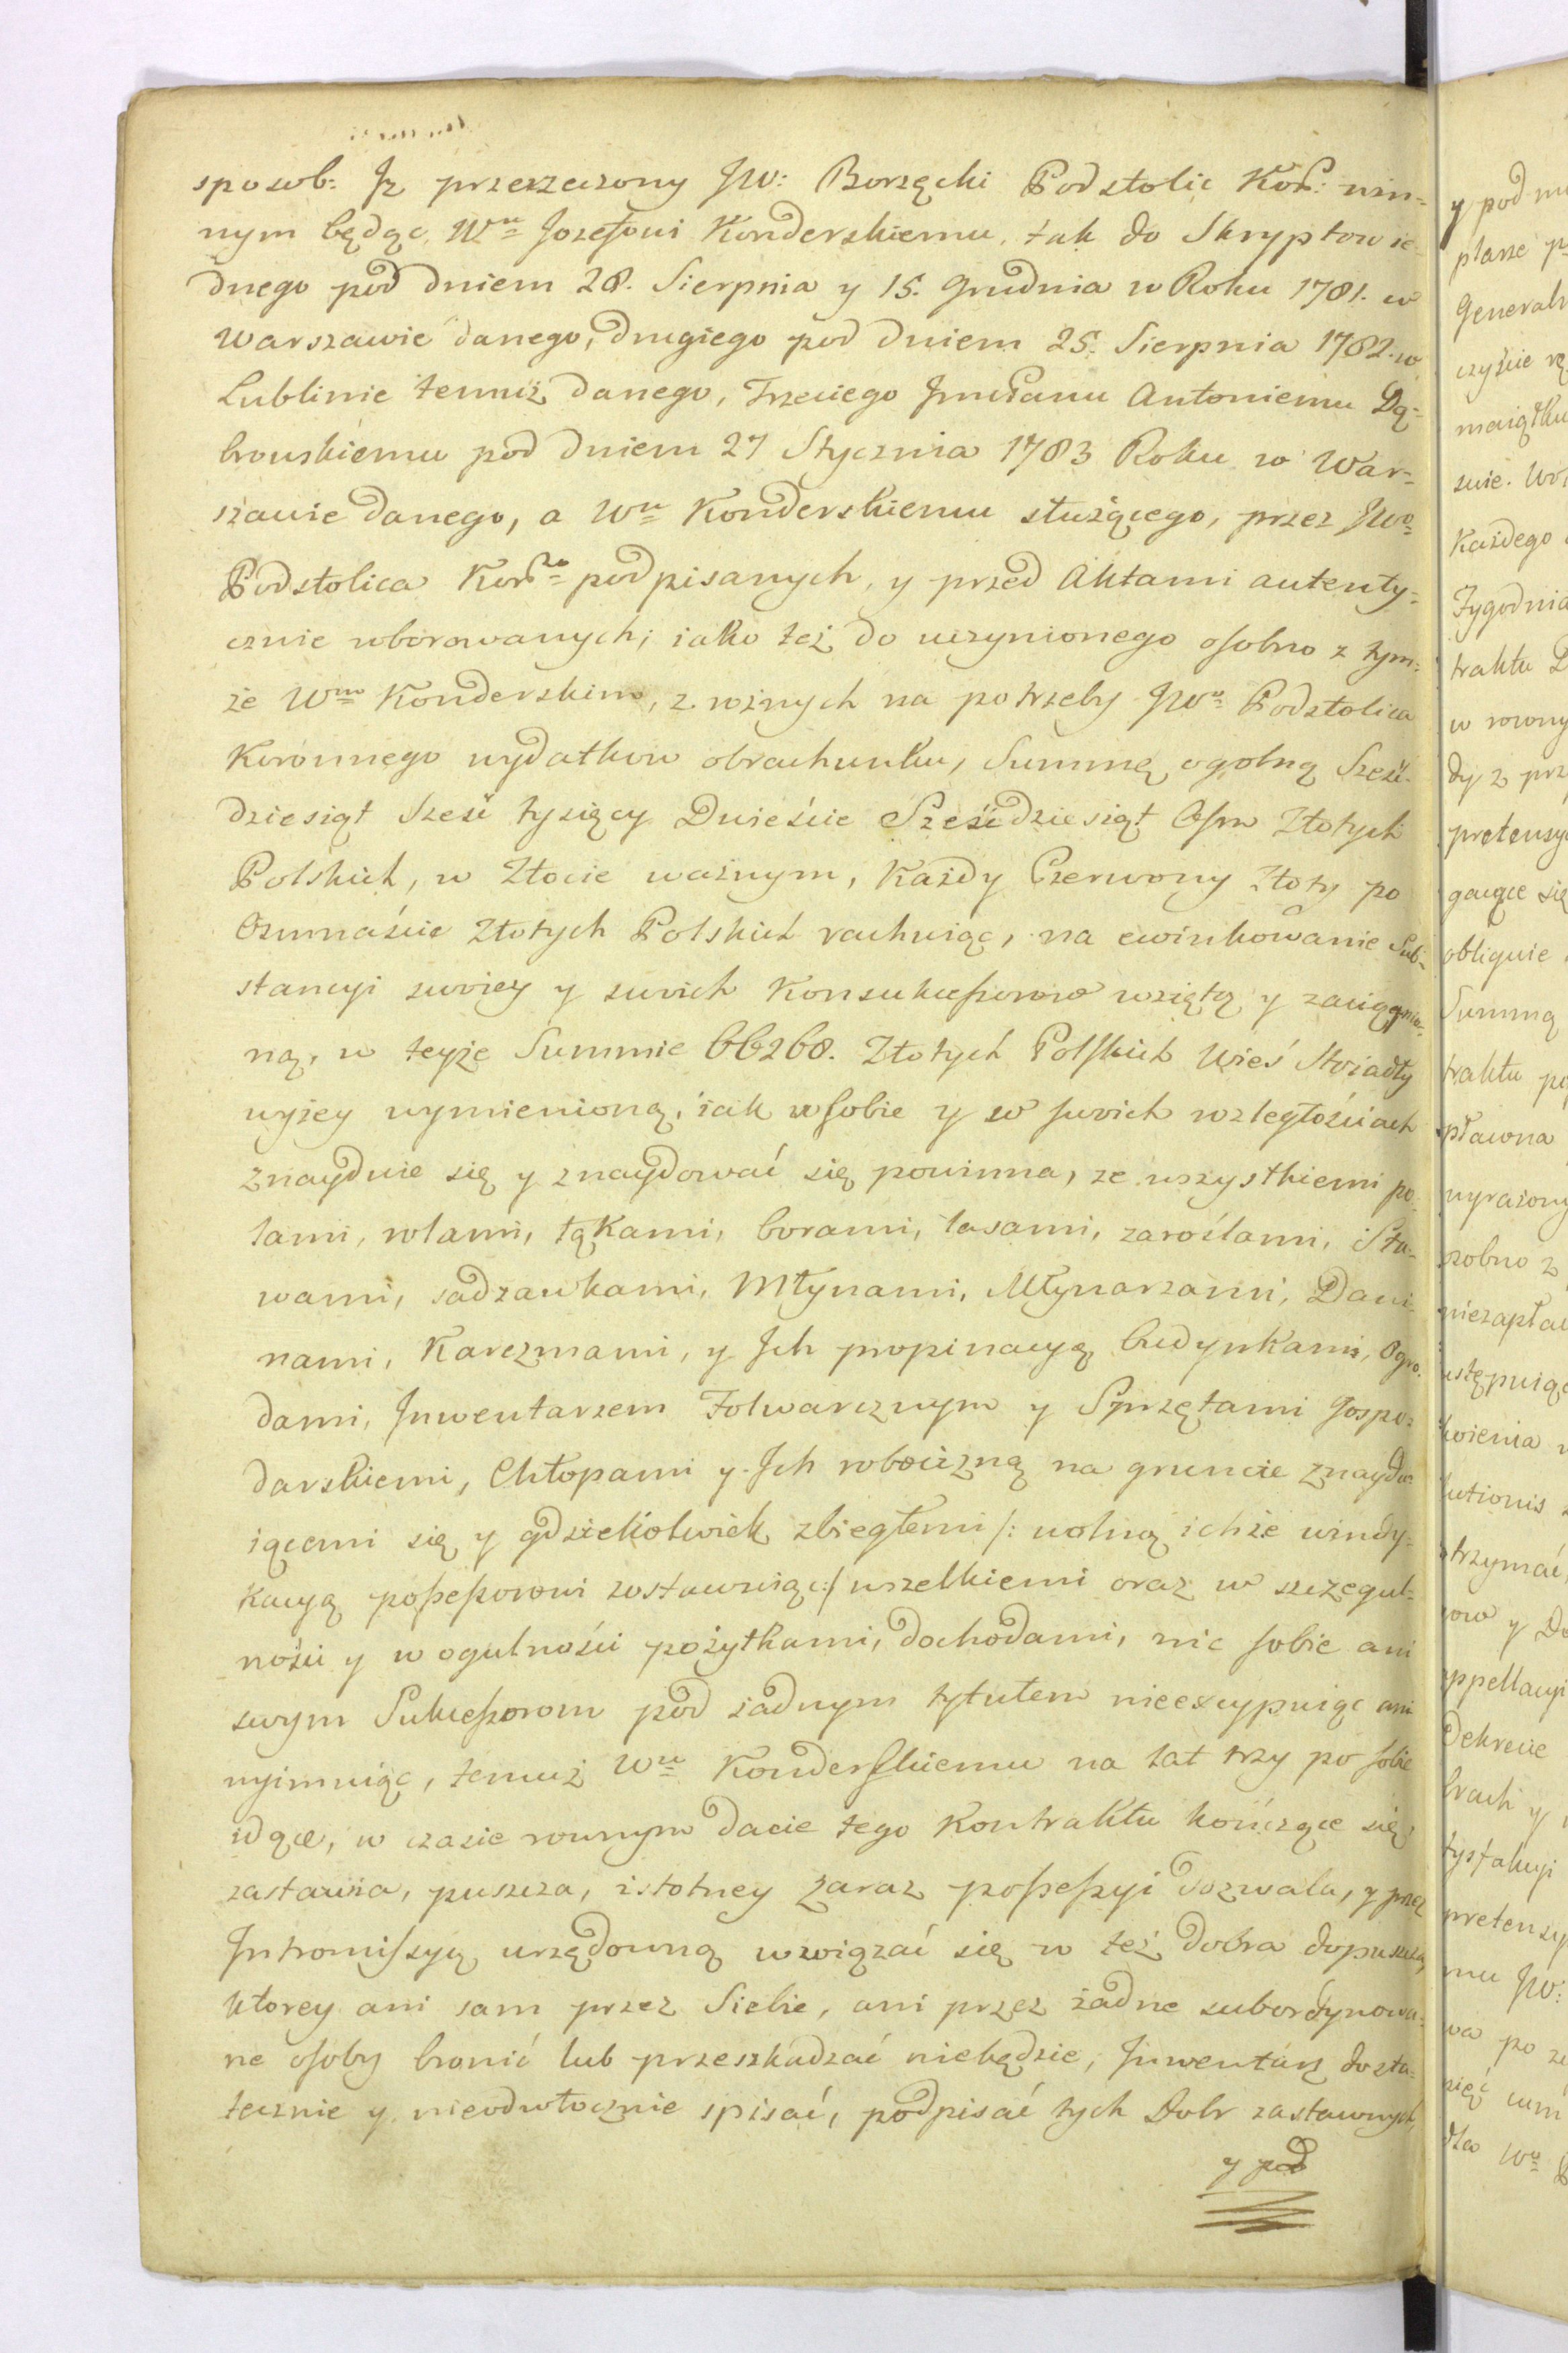 sposob: Jz przerzeczony JW: Borzęcki Podstolic Kor: win-
nym będąc, Wu Jozefowi Konderskiemu, tak do Skryptow ie-
dnego pod dniem 28. Sierpnia y 15. Grudnia w Roku 1781. w
Warszawie danego, drugiego pod dniem 25. Sierpnia 1782. w
Lublinie temuż danego, Trzeciego Jmć Panu Antoniemu Dą-
browskiemu pod dniem 27 Stycznia 1783 Roku w War-
szawie danego, a Wu Konderskiemu służącego, przez JWo
Podstolica Kor: podpisanych, y przed Aktami autenty-
cznie roborowanych; iako też do uczynionego osobno z tym-
że Wm Konderskim, z rożnych na potrzeby JWo Podstolica
Koronnego wydatkow obrachunku, Summę ogolną Sześć-
dziesiąt Sześć tysięcy Dwieście Sześćdziesiąt Osm Złotych
Polskich, w Złocie ważnym, Każdy Czerwony Złoty po
Osmnaście Złotych Polskich rachuiąc, na ewinkowanie Sub-
stancyi swoiey y swoich Konsukcessorow wziętą y zaciągnio-
ną, w teyże Summie 66268. Złotych Polskich Wieś
wyżey wymienioną, iak w sobie y w swoich rozległościach
znayduie się y znaydować się powinna, ze wszystkiemi po-
lami, rolami, łąkami, borami, lasami, zaroślami, Sta-
wami, sadzawkami, Młynami, Młynarzami, Dani-
nami, Karczmami, y Jch propinacyą, budynkami, Ogro-
dami, Jnwentarzem Folwarcznym y Sprzętami Gospo-
darskiemi, Chłopami y Jch robocizną na gruncie znaydu-
iącemi się y gdziekolwiek zbiegłemi /: wolną ichże windy-
kacyą possessorowi zostawuiąc :/ wszelkiemi oraz w szczegul-
ności y w ogulności pożytkami, dochodami, nic sobie ani
swym Sukcessorom pod żadnym tytułem nieexcypuiąc ani
wyimuiąc, temuż Wu Konderskiemu na lat trzy po sobie
idące, w czasie rownym dacie tego Kontraktu kończące się
zastawia, puszcza, istotney zaraz possessyi dozwala, y przez
Jntromissyą urzędowną wwiązać się w też dobra dopuszcza,
ktorey ani sam przez Siebie, ani przez żadne subordynowa-
ne osoby bronić lub przeszkadzać niebędzie, Jnwentarz dosta-
tecznie y nieodwłocznie spisać, podpisać tych Dobr zastawnych,
y pod
y pod
Generaln
maiątku
Każdego
Tygodnia
traktu
w rowny
dy z prz
pretensy
gaiące się
obliguie
Summą
traktu
wyrażony
niezapłac
ustępuiąc
trzymać,
Dekrecie
pretensy
mu JW: